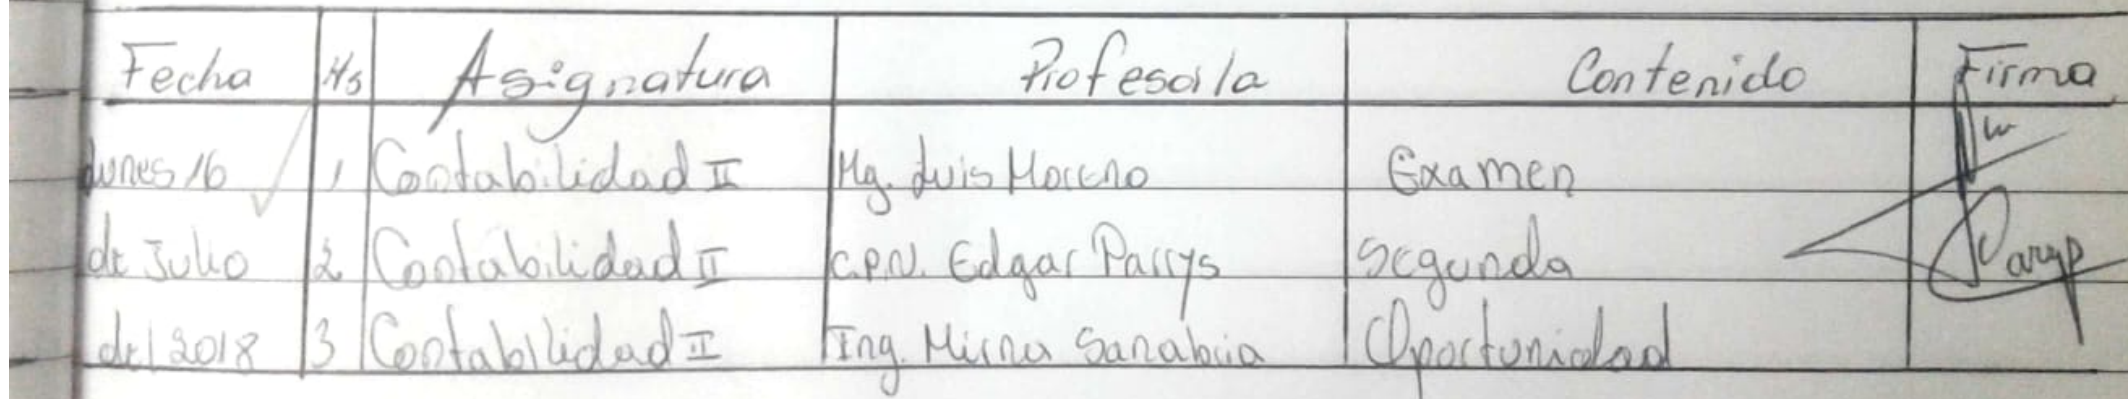 Fecha Hs Asignatura Profesor/a Contenido Firma
Lunes 16 1 Contabilidad II Mg. Luis Moreno Examen
de Julio 2 Contabilidad II C.P.N. Edgar Parrys Segunda
del 2018 3 Contabilidad II Ing. Mirna Sanabria Oportunidad